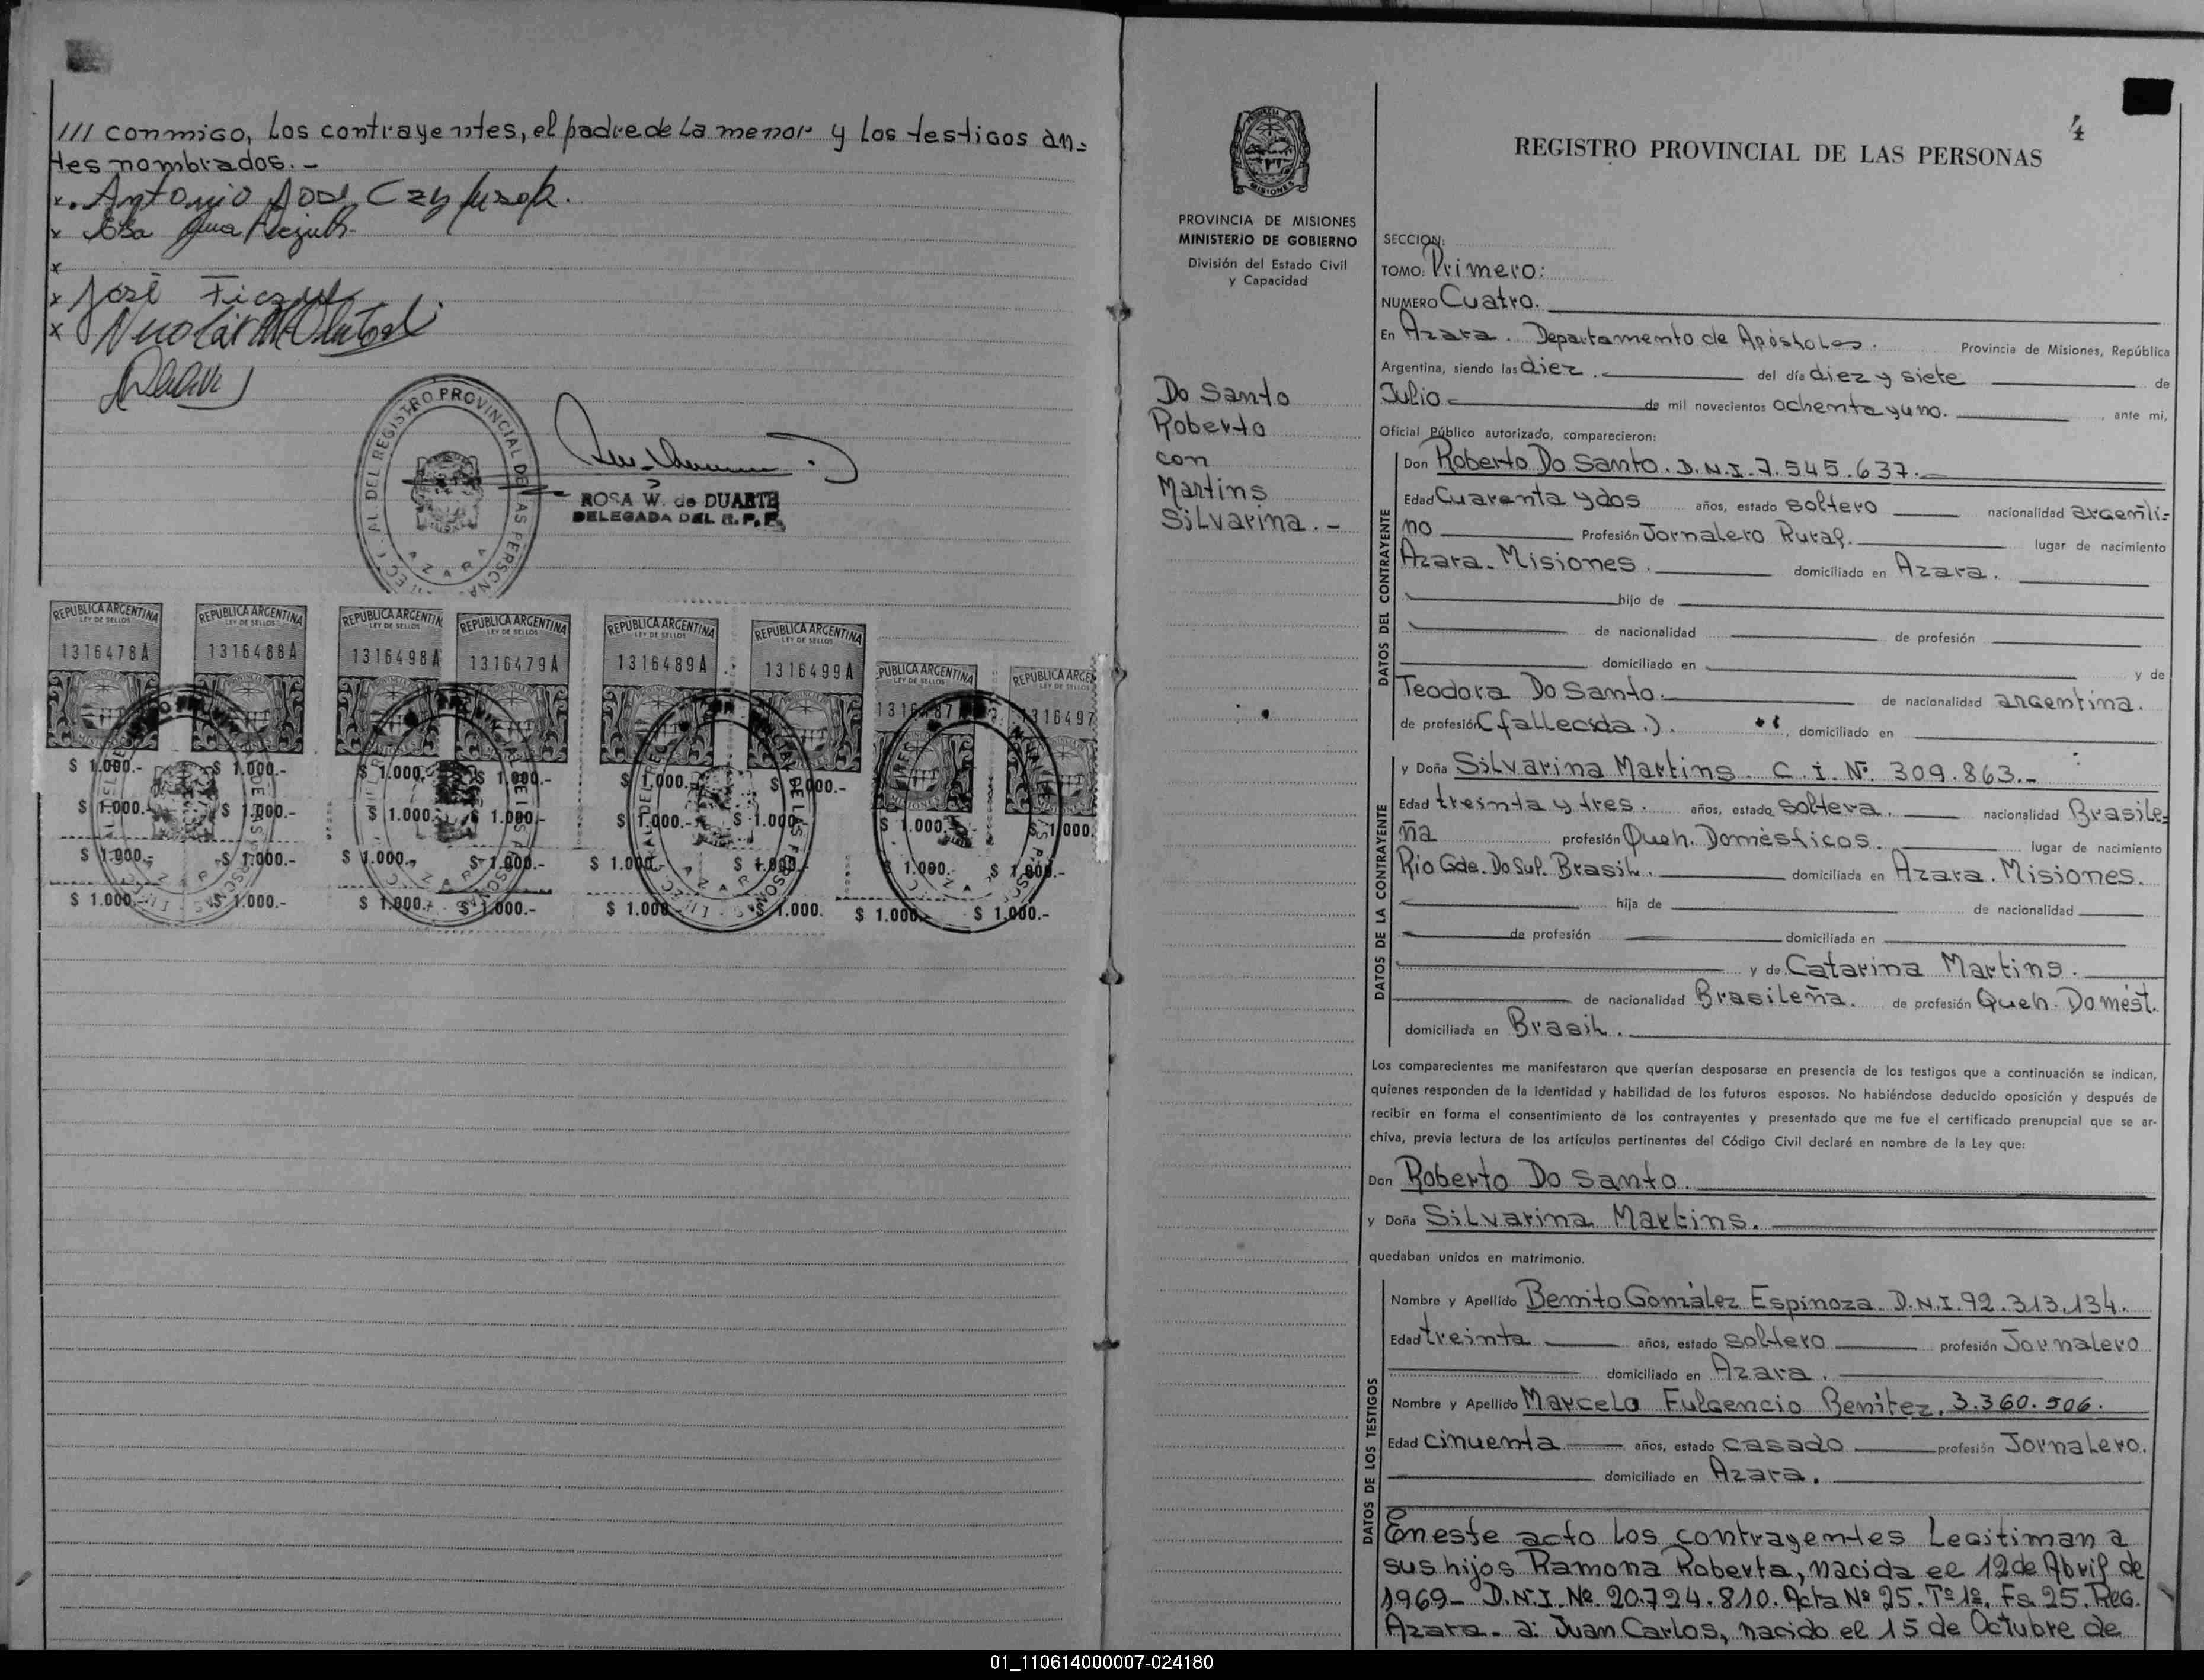 /// conmigo, los contrayentes, el padre de la menor y los testigos an=
tes nombrados.-
x. Antonio José
x
x
x José
x
REGISTRO PROVINCIAL DE LAS PERSONAS
AZARA
ROSA W. de DUARTE
DELEGADA DEL R.P.P.
REPUBLICA ARGENTINA REPUBLICA ARGENTINA REPUBLICA ARGENTIN REPUBLICA ARGENTINA REPUBLICA ARGENTINA REPUBLICA ARGENTINA PUBLICA ARGENTINA REPUBLICA ARGE
LEY DE SELLOS LEY DE SELLOS LEY DE SELLOS LEY DE SELLOS LEY DE SELLOS LEY DE SELLOS LEY DE SELLOS LEY DE SELLOS
1316478A 1316488A 1316498A 1316479A 1316489A 1316499A 1316497
$ 1.000.- $ 1.000.- $ 1.000.- $ 1.000.- $ 1.000.- $ 1.000.- $ 1.000.- $ 1.000.
$ 1.000.- $ 1.000.- $ 1.000.- $ 1.000.- $ 1.000.- $ 1.000.- $ 1.000.- $ 1.000.-
$ 1.000.- $ 1.000.- $ 1.000.- $ 1.000.- $ 1.000.- $ 1.000.- $ 1.000.- $ 1.000.-
$ 1.000.- $ 1.000.- $ 1.000.- $ 1.000.- $ 1.000. $ 1.000.
4
PROVINCIA DE MISIONES
MINISTERIO DE GOBIERNO
División del Estado Civil
y Capacidad
Do Santo
Roberto
con
Martins
Silvarina.-
REGISTRO PROVINCIAL DE LAS PERSONAS
SECCION:
TOMO: Primero:
NUMERO Cuatro.
En Azara. Departamento de Apóstoles. Provincia de Misiones, República
Argentina, siendo las diez. del día diez y siete de
Julio de mil novecientos ochenta y uno. , ante mí,
Oficial Público autorizado, comparecieron:
DATOS DEL CONTRAYENTE
Don Roberto Do Santo. D.N.I. 7.545.637.
Edad Cuarenta y dos años, estado soltero nacionalidad argenti=
no Profesión Jornalero Rural. lugar de nacimiento
Azara. Misiones. domiciliado en Azara.
hijo de
de nacionalidad de profesión
domiciliado en y de
Teodora Do Santo. de nacionalidad argentina.
de profesión (fallecida.). , domiciliado en
DATOS DE LA CONTRAYENTE
y Doña Silvarina Martins. C.I. Nº 309.863.-
Edad treinta y tres. años, estado soltera. nacionalidad Brasile=
ña profesión Queh. Domésticos. lugar de nacimiento
Rio Gde. Do Sul. Brasil. domiciliada en Azara. Misiones.
hija de de nacionalidad
de profesión domiciliada en
y de Catarina Martins.
de nacionalidad Brasileña. de profesión Queh. Domést.
domiciliada en Brasil.
Los comparecientes me manifestaron que querían desposarse en presencia de los testigos que a continuación se indican,
quienes responden de la identidad y habilidad de los futuros esposos. No habiéndose deducido oposición y después de
recibir en forma el consentimiento de los contrayentes y presentado que me fue el certificado prenupcial que se ar-
chiva, previa lectura de los artículos pertinentes del Código Civil declaré en nombre de la Ley que:
Don Roberto Do Santo.
y Doña Silvarina Martins.
quedaban unidos en matrimonio.
DATOS DE LOS TESTIGOS
Nombre y Apellido Benito González Espinoza. D.N.I. 92.313.134.
Edad treinta años, estado soltero profesión Jornalero
domiciliado en Azara.
Nombre y Apellido Marcelo Fulgencio Benítez. 3.360.506.
Edad cinuenta años, estado casado profesión Jornalero.
domiciliado en Azara.
En este acto los contrayentes Legitiman a
sus hijos Ramona Roberta, nacida el 12 de Abril de
1969- D.N.I. Nº 20.724.810. Acta Nº 25. Tº 1º. Fs. 25. Reg.
Azara. a: Juan Carlos, nacido el 15 de Octubre de
01_110614000007-024180